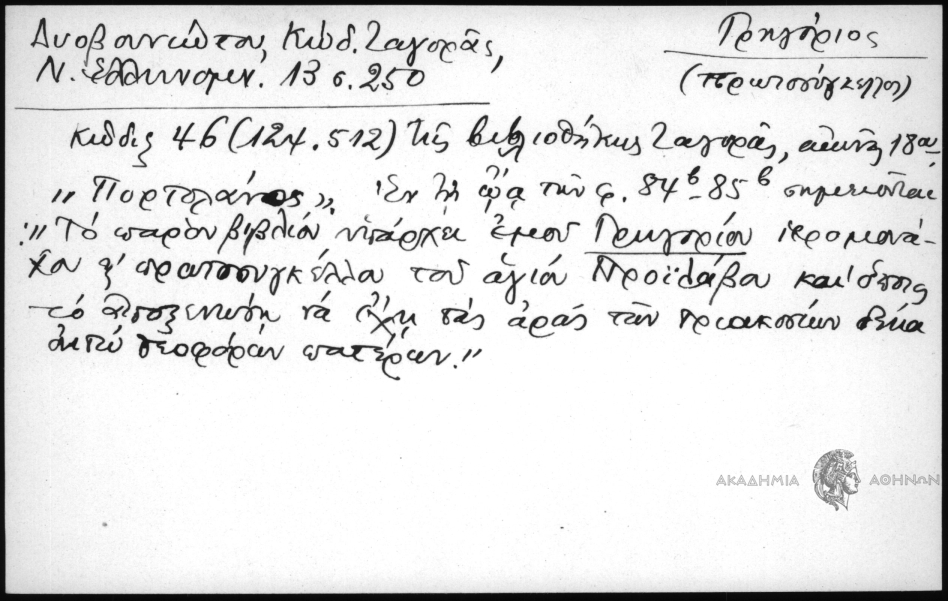 Δυοβουνιώτου, Κώδ. Ζαγορᾶς,
Ν. Ἑλληνομν. 13 σ. 250
Γρηγόριος
(πρωτοσύγκελλος)
Κῶδιξ 46 (124.512) τῆς βιβλιοθήκης Ζαγορᾶς, αἰῶνος 18ου
"Πορτολάνος". Ἐν τῇ ᾤᾳ τῶν φ. 84β-85β σημειοῦται
: "Τό παρὸν βιβλίον ὑπάρχει ἐμοῦ Γρηγορίου ἱερομονά-
χου κ' πρωτοσυγκέλλου τοῦ ἁγίου Προϊλάβου καὶ ὅστις
τό ἀποξενώσῃ νά ἔχῃ τάς ἀράς τῶν τριακοσίων δέκα
ὀκτώ θεοφόρων πατέρων."
ΑΚΑΔΗΜΙΑ ΑΘΗΝΩΝ